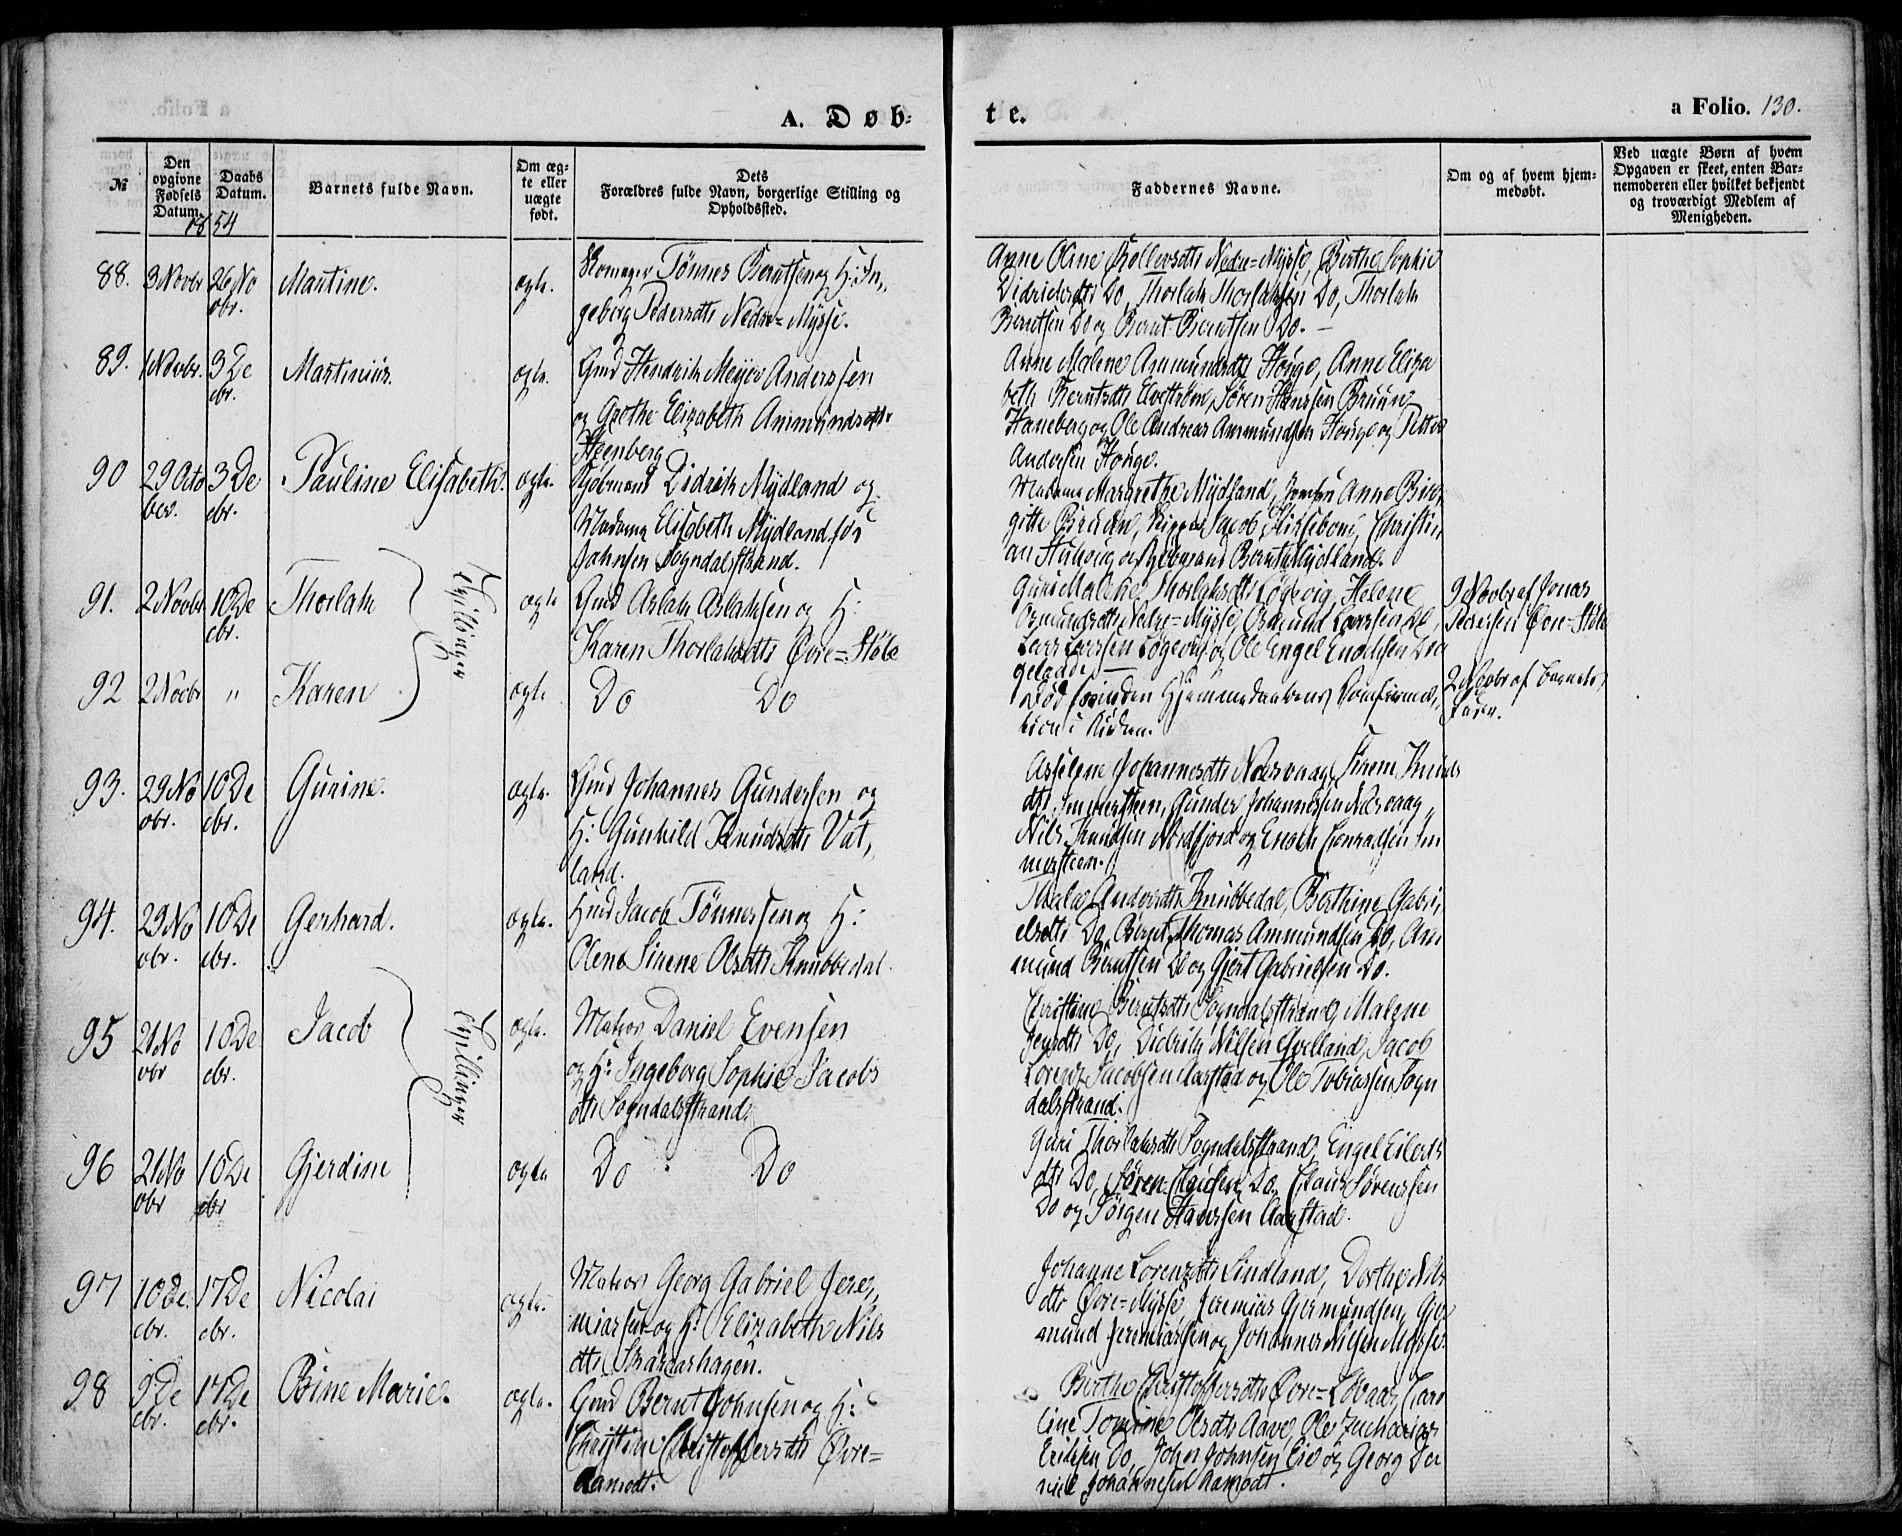 A. Døb-
te.
a Folio. 130.
№
Den opgivne Fødsels Datum.
Daabs Datum.
Barnets fulde Navn.
Om ægte eller uægte født.
Dets Forældres fulde Navn, borgerlige Stilling og Opholdssted.
Faddernes Navne.
Om og af hvem hjemmedøbt.
Ved uægte Børn af hvem Opgaven er skeet, enten Barnemoderen eller hvilket bekjendt og troværdigt Medlem af Menigheden.
1854
88. 3 Novbr 26 No Martine. ægte. Skomager Tønnes Berntsen og H: In,
vbr. geborg Pedersdtr Nedre=Mysse.
Anne Oline Nedre=Mysse, Berthe Sophie
Didriksdtr Do, Thorlak Thorlaksen Do, Thorlak
Berntsen Do og Bernt Berntsen Do. —
89. 1 Novbr. 3 De Martinius. ægte. Gmd Hendrik Meyer Anderssen
cbr. og Grethe Elizabeth Ammundsdtr
Steenberg
Anne Malene Ammundsdtr Houge, Anne Eliza
beth Berntsdtr Elvestrøm, Søren Hanssen Bruun
Haneberg og Ole Andreas Ammundsen Houge og Petter
Andersen Houge.
90 29 Octo 3 De Pauline Elisabeth. ægte. Kjøbmand Didrik Mydland og
ber. cbr. Madame Elisabeth Mydland før
Johnsen Sogndalsstrand.
Madame Margrethe Mydland, Jomfru Anne Bir
gitte Skipper Jacob Christi
an og Kjøbmand Bernt Mydland.
91. 2 Novbr 10 De Thorlak ægte Gmd Aslak Aslaksen og H:
cbr. Karen Thorlaksdtr Øvre=Støle
Tvillinger
Guri Malene Thorlaksdtr Løgevig, Helene
Osmundsdtr Mysse, Osmund Larssen Do,
Lars Larssen Løgevig og Ole Engel Enochsen
9 Novbr af Jonas
Pedersen Øvre=Støle
92 2 Novbr " Karen ægte Do Do
Død forinden Hjemmedaabens Confirma,
tion i Kirken.
2 Novbr af Barnets
Fader.
93. 29 No 10 De Gurine. ægte. Gmd Johannes Gundersen og
vbr. cbr. H: Gunhild Knudsdtr Vat,
land.
Asseline Johannesdtr Nesvaag, Siren Knuds
dtr Immersteen, Gunder Johannessen Nesvaag,
Nils Knudsen Nordfjord og Enoch Conradsen Im
mersteen.
94. 29 No 10 De Gerhard. ægte. Hmd Jacob Tønnessen og H:
vbr. cbr. Olene Sirene Olsdtr Knubbedal.
Andersdtr Knubbedal, Berthine Gabri,
elsdtr Do, Bernt Thomas Ammundsen Do, Am
mund Berntsen Do og Gjert Gabrielsen Do.
95 21 No 10 De Jacob ægte. Matros Daniel Evensen
vbr cbr. og H: Ingeborg Sophie Jacobs
dtr Sogndalsstrand.
Tvillinger
Christine Berntsdtr Sogndalsstrand, Malene
Do, Didrik Nilsen Jacob
Lorentz Jacobsen Aarstad og Ole Tobiassen Sogn
dalsstrand.
96 21 No 10 De Gjerdine ægte Do Do
vbr cbr
Guri Thorlaksdtr Sogndalsstrand, Engel Eilerts
dtr Do, Søren Clausen Do, Claus Sørenssen
Do og Jørgen Hanssen Aarstad.
97 10 De 17 De Nicolai ægte. Matros Georg Gabriel Jere,
cbr. cbr. miassen og H: Elizabeth Nils
dtr
Johanne Lorentzdtr Lindland, Dorthe Nils
dtr Øvre=Mysse, Jeremias Gjermundsen, Gjer
mund Jeremiassen og Johannes Nilsen Mysse.
98 9 De 17 De Bine Marie. ægte. Gmd Bernt Johnsen og H:
cbr. cbr. Christine Christoffersdtr Øvre=
Aamodt.
Berthe Christoffersdtr Øvre= Caro
line Tomine Olsdtr Aave, Ole Zacharias
Eriksen Do, John Johnsen Eie og Georg Da
niel Johannesen Aamodt.